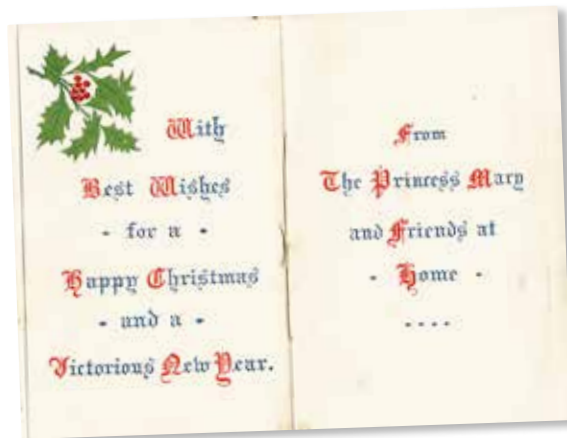 With
Best Wishes
- for a -
Happy Christmas
- and a -
Victorious New Year.
From
The Princess Mary
and Friends at
- Home -
....